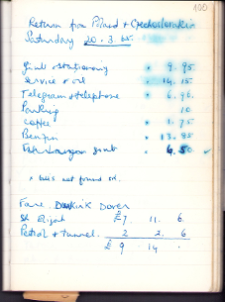 100
Return from Poland & Czechoslovakia
Saturday 20.3.65.
& stationary 9.95
Service & oil 14.15
Telegram & telephone 6.96
Parking 10
Coffee 1.75
Benzin 13.95
6.50
x was not found in.
Fare Dunkirk Dover
£7. 11. 6.
Petrol & tunnel. 2 2. 6
£9 14